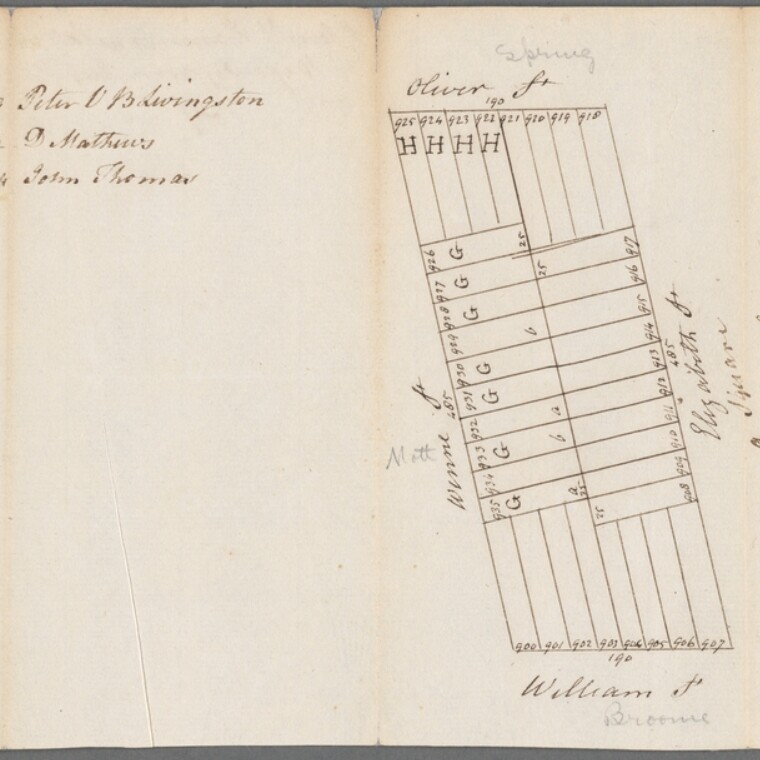 Peter V B Livingston
D Mathews
John Thomas
Spring
Oliver St
190
925 924 923 922 921 920 919 918
H H H H
25
926 G 917
25
927 G 916
928 G 915
929 6 914
930 G 913
485
931 G 912
485
932 a 911
933 G b 910
934 909
a
25
935 G 908
25
Winne St
Mott
Elizabeth St
Square
900 901 902 903 904 905 906 907
190
William St
Broome